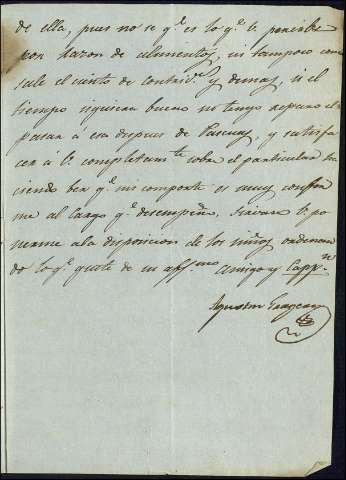 de ella, pues no se q.e es lo q.e le percibe
por razon de alimentos, ni tampoco
sale el cuento de contrib.s y demas, si el
tiempo siguiera bueno no tengo reparo el
pasar a esa despues de Pascuas, y satisfa
cer a V. completam.te sobre el particular ha
ciendo ber q.e mi comporte es muy confor
me al cargo q.e desempeño, sirvase V. po
nerme a la disposicion de los niños ordenan
do lo q.e guste de su aff.mo amigo y Capp.n
Agustin